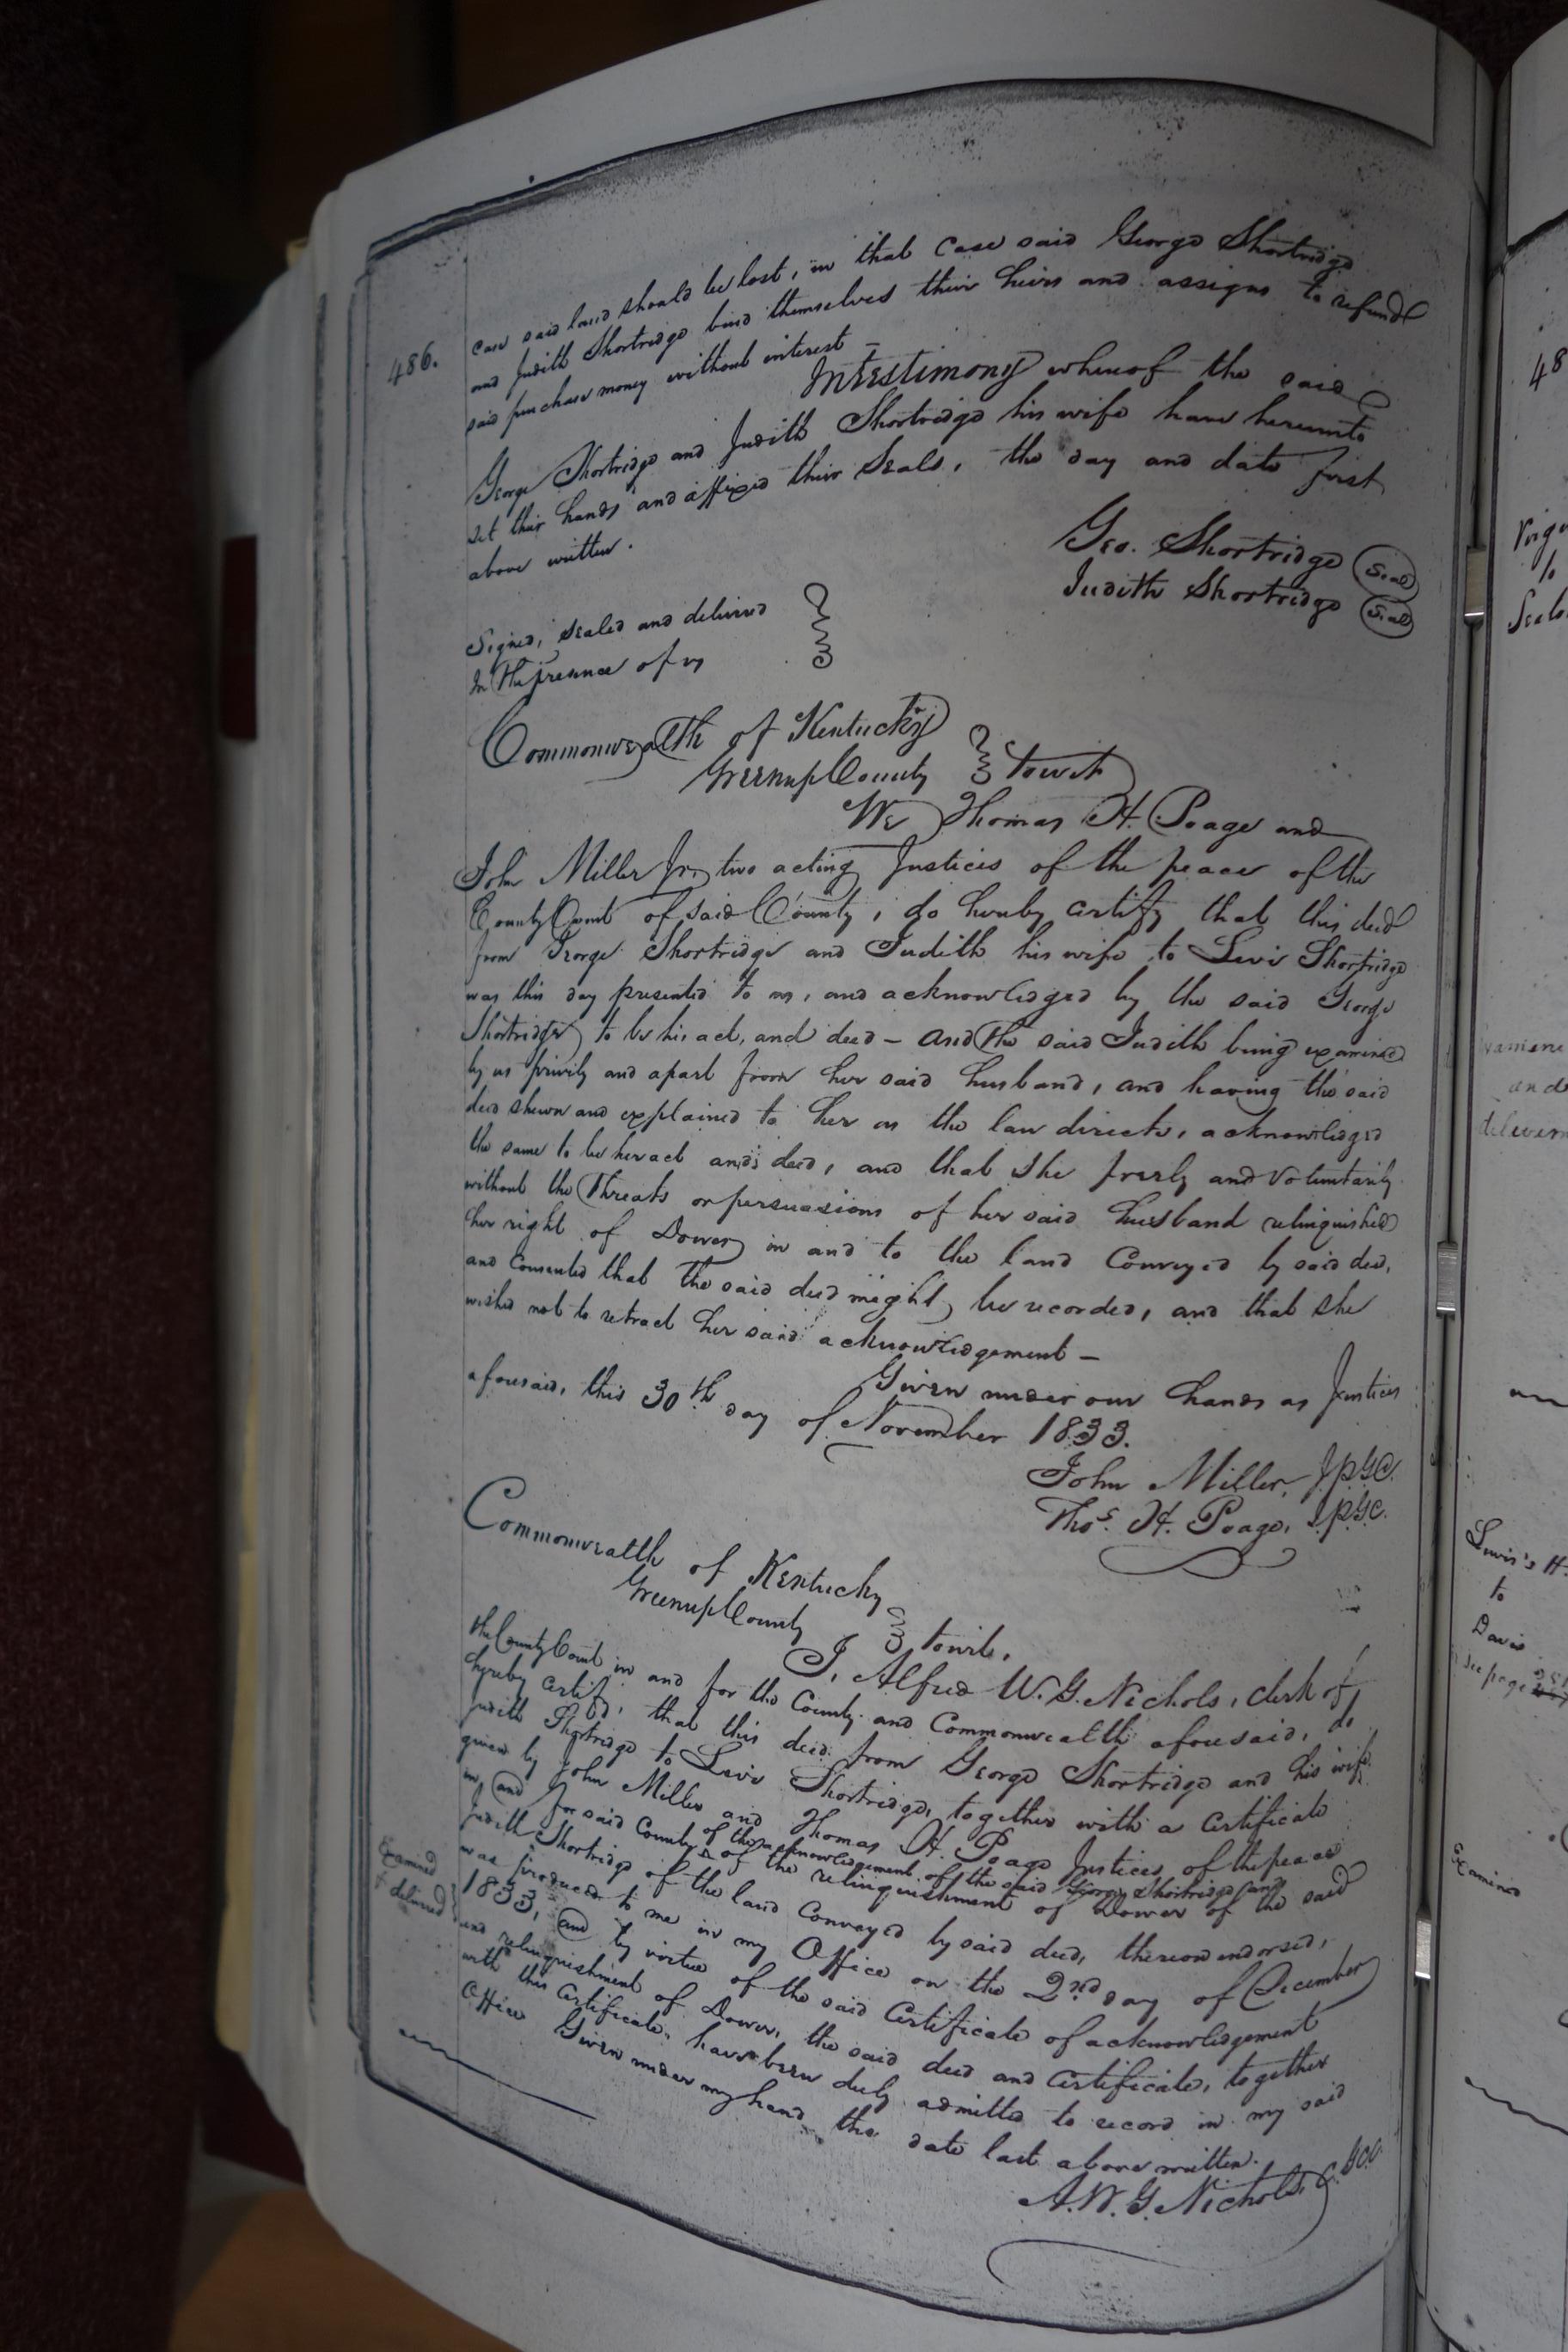 486.
case said land should be lost, in that case said George Shortridge
and Judith Shortridge bind themselves their heirs and assigns to refund
said purchase money without interest –
In Testimony whereof the said
George Shortridge and Judith Shortridge his wife have hereunto
set their hands and affixed their Seals, the day and date first
above written.
Geo. Shortridge (Seal)
Judith Shortridge (Seal)
Signed, sealed and delivered
In the presence of us
Commonwealth of Kentucky
Greenup County towit
We Thomas H. Poage and
John Miller Jr, two acting Justices of the peace of the
County Court of said County, do hereby certify that this deed
from George Shortridge and Judith his wife to Levi Shortridge
was this day presented to us, and acknowledged by the said George
Shortridge to be his act, and deed – and the said Judith being examined
by us privily and apart from her said husband, and having the said
deed shewn and explained to her as the law directs, acknowledged
the same to be her act and deed, and that she freely and voluntarily
without the threats or persuasions of her said husband relinquished
her right of Dower, in and to the land conveyed by said deed,
and consented that the said deed might be recorded, and that she
wished not to retract her said acknowledgement –
Given under our hands as Justices
aforesaid, this 30th day of November 1833.
John Miller, JPGC.
Thos. H. Poage, JPGC.
Commonwealth of Kentucky
Greenup County towit,
I, Alfred W. G. Nichols, clerk of
the County Court in and for the County and Commonwealth aforesaid, do
hereby certify, that this deed from George Shortridge and his wife
Judith Shortridge to Levi Shortridge, together with a certificate
given by John Miller and Thomas H. Poage Justices of the peace
in and for said County, of the acknowledgement of the said George Shortridge and
& of the relinquishment of Dower of the said
Judith Shortridge of the land conveyed by said deed, thereon endorsed,
was produced to me in my Office on the 2nd day of December
1833, and by virtue of the said Certificate of acknowledgement
and relinquishment of Dower, the said deed and certificate, together
with this certificate, have been duly admitted to record in my said
Office Given under my hand the date last above written.
A. W. G. Nichols, C.GCC
Examined
& delivered
48
Seals
and
deliver
Lewis's H.
to
Davis
see page
Examined